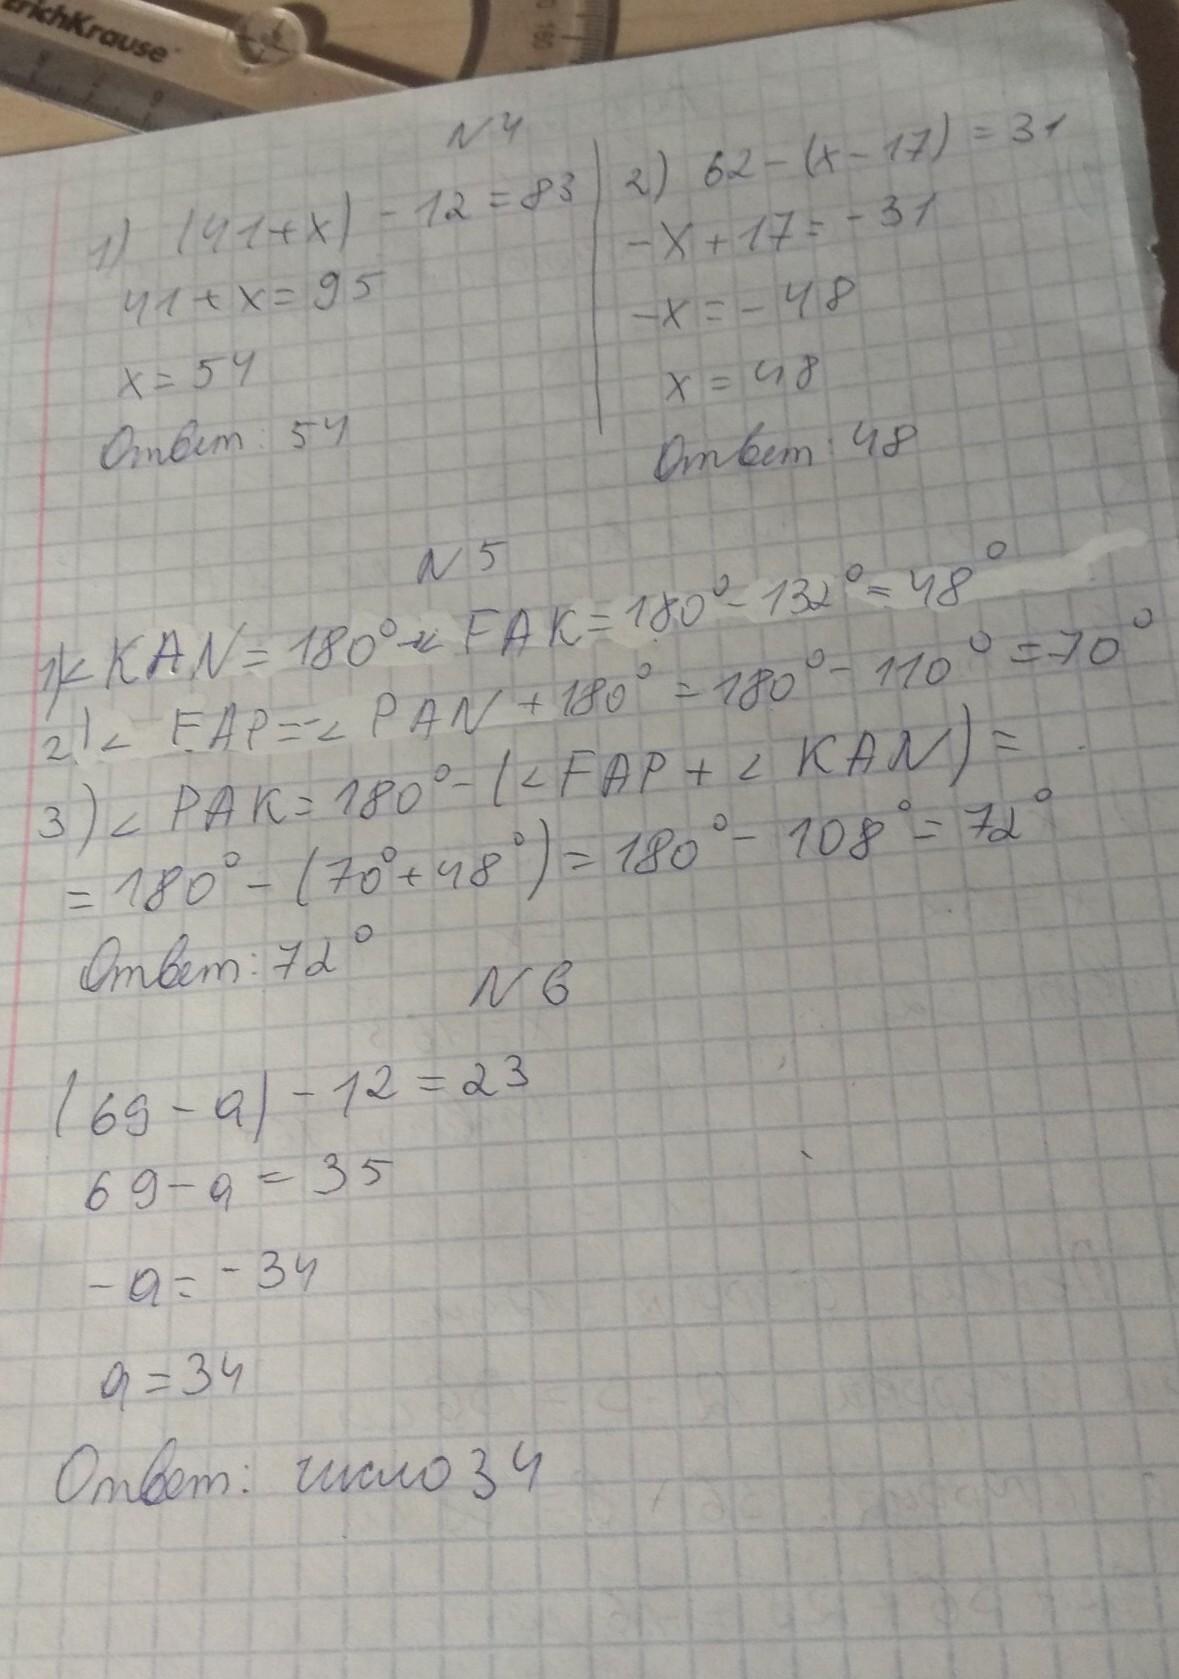 ErichKrause
N4
1) (41+x) - 12 = 83
41+x = 95
x = 54
Ответ: 54
2) 62 - (x - 17) = 31
-x + 17 = -31
-x = -48
x = 48
Ответ: 48
N 5
1) < KAN = 180° - < FAK = 180° - 132° = 48°
2) < FAP = - < PAN + 180° = 180° - 110° = 70°
3) < PAK = 180° - (< FAP + < KAN) =
= 180° - (70° + 48°) = 180° - 108° = 72°
Ответ: 72°
N 6
(69 - a) - 12 = 23
69 - a = 35
-a = -34
a = 34
Ответ: число 34